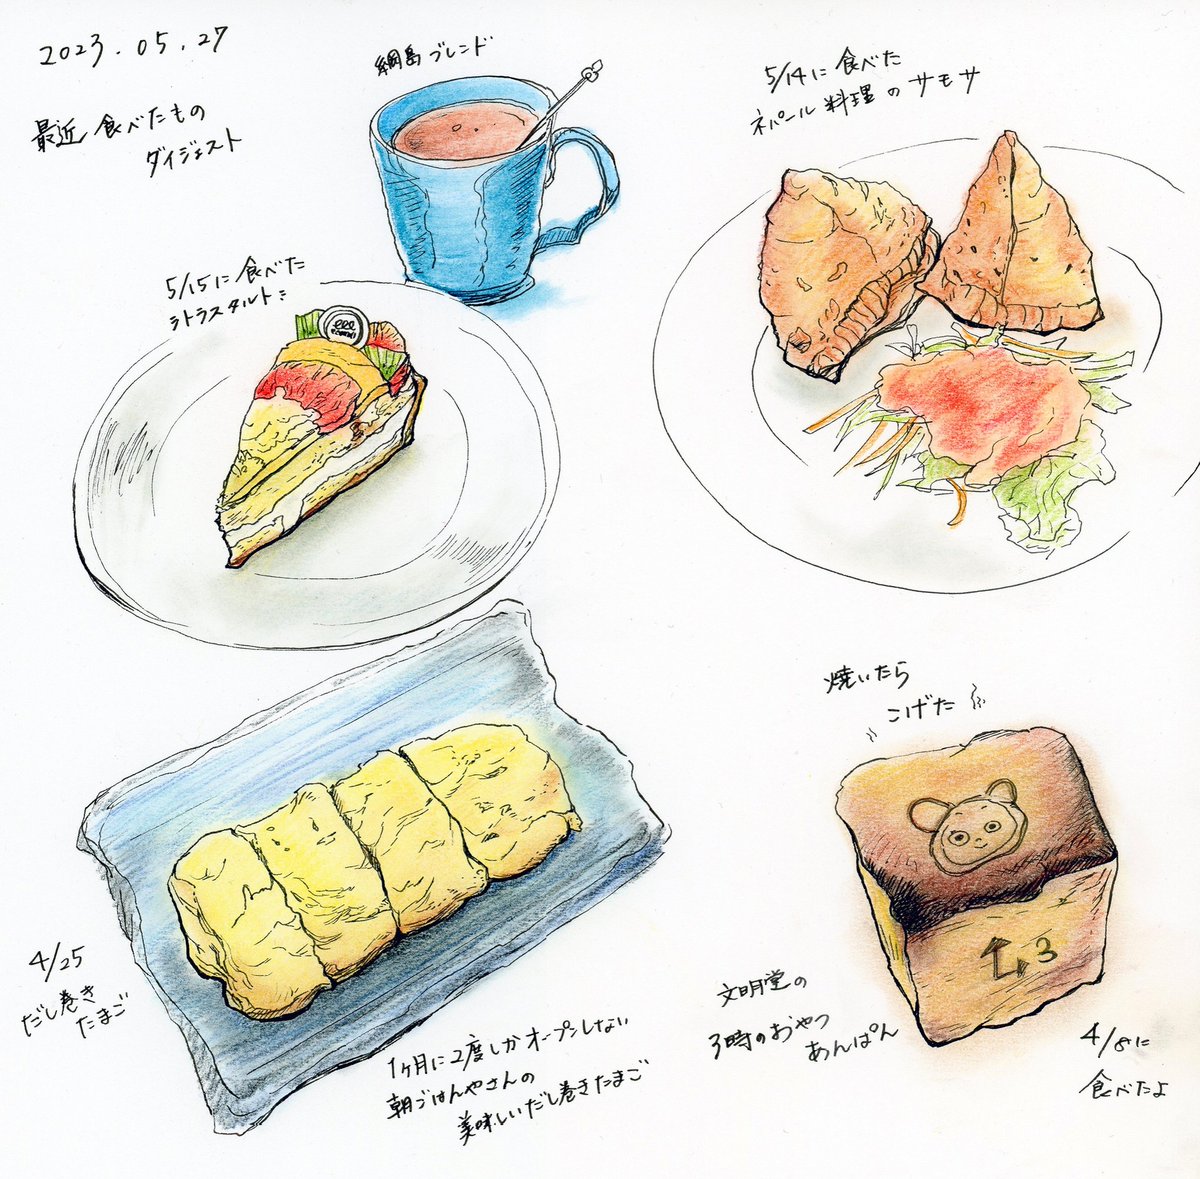 2023.05.27
最近食べたもの
ダイジェスト
綱島ブレンド
5/14に食べた
ネパール料理のサモサ
5/15に食べた
シトラスタルト
焼いたら
こげた
3
4/25
だし巻き
たまご
1ヶ月に2度しかオープンしない
朝ごはんやさんの
美味しいだし巻きたまご
文明堂の
3時のおやつ
あんぱん
4/8に
食べたよ